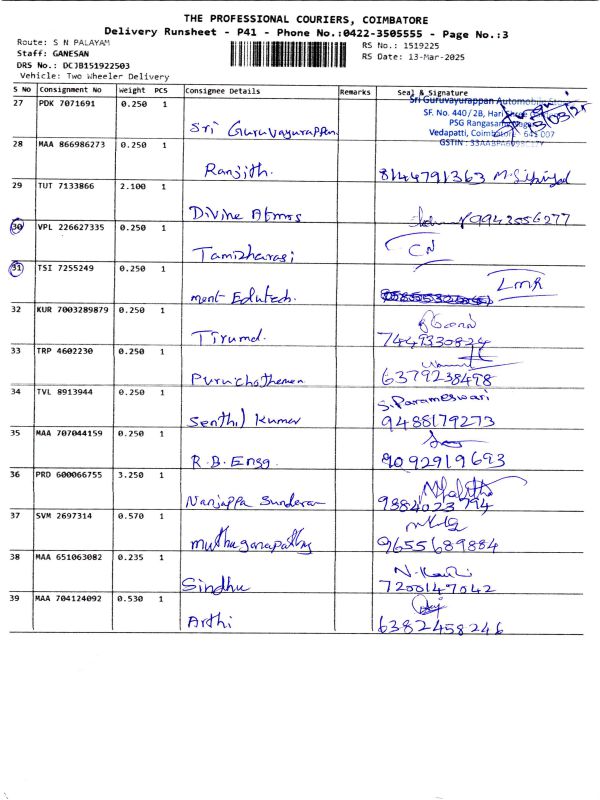 THE PROFESSIONAL COURIERS, COIMBATORE
Delivery Runsheet - P41 - Phone No.:0422-3505555 - Page No.:3
Route: S N PALAYAM
RS No.: 1519225
Staff: GANESAN
RS Date: 13-Mar-2025
DRS No.: DCJB151922503
Vehicle: Two Wheeler Delivery
S No Consignment No Weight PCS Consignee Details Remarks Seal & Signature
27 PDK 7071691 0.250 1
Sri Guruvayurappan Automobile
SF. No. 440/2B, Hari
PSG Rangasamy
Vedapatti, Coimbatore 641 007
GSTIN :
Sri Guruvayurappan
28 MAA 866986273 0.250 1
Ranjith. 8144791363
29 TUT 7133866 2.100 1
Divine Atmos 9942556277
30 VPL 226627335 0.250 1
Tamizharasi CN
31 TSI 7255249 0.250 1
LMR
ment Edutech.
32 KUR 7003289879 0.250 1
Tirumal. 7449330824
33 TRP 4602230 0.250 1
Puruchothaman 6379238498
34 TVL 8913944 0.250 1
S. Parameswari
Senthil Kumar 9488179273
35 MAA 707044159 0.250 1
R.B. Engg. 9092919693
36 PRD 600066755 3.250 1
Nanjappa Sunderan 9384023794
37 SVM 2697314 0.570 1
muthuganapathy 9655689884
38 MAA 651063082 0.235 1
Sindhu 7200147042
39 MAA 704124092 0.530 1
Arthi 6382458246